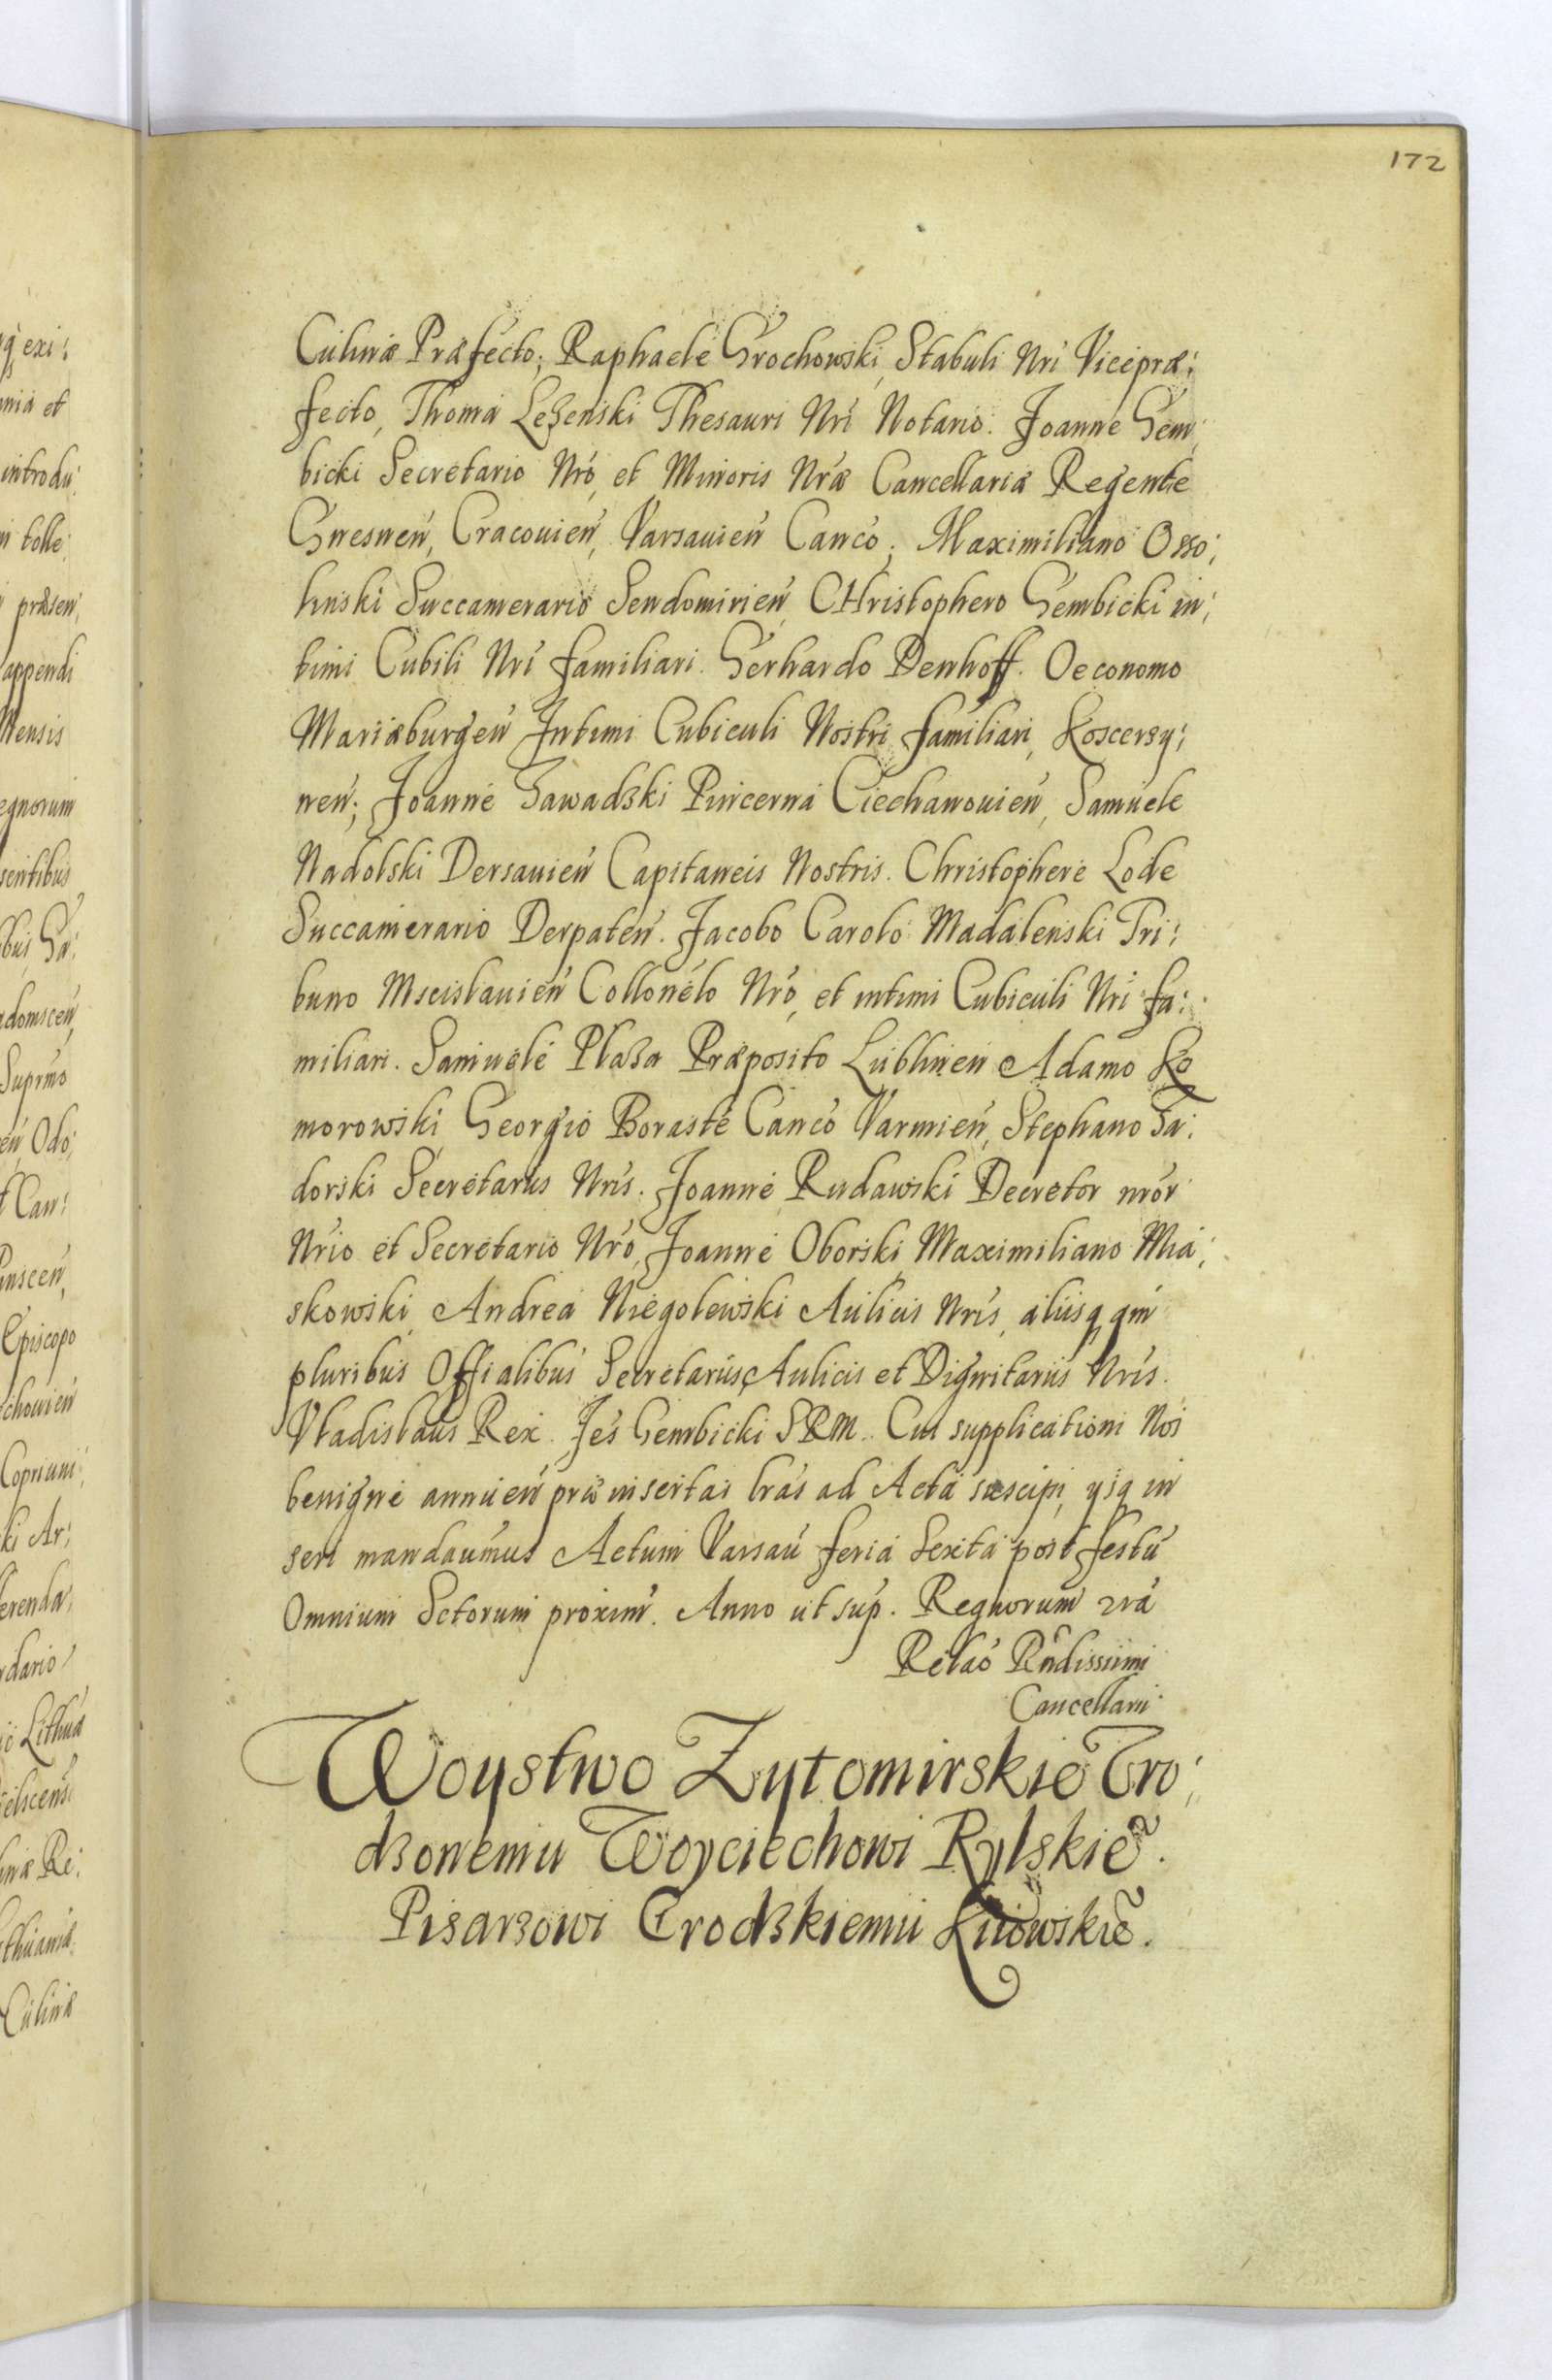 172
Culinæ Præfecto; Raphaele Grochowski, Stabuli Nri Viceprae:
fecto, Thoma Leženski Thesauri Nri Notario. Joanne Gem
bicki Secretario Nro, et Minoris Nræ Cancellariæ Regente
Gnesneń, Cracouień, Varsauień Canco; Maximiliano Osso;
linski Succamerario Sendomirień, CHristophero Gembicki in;
timi Cubili Nri familiari. Gerhardo Denhoff. Oeconomo
Mariæburgeń Intimi Cubiculi Nostri familiari, Koscersy;
neń; Joanne Zawadzki Pincerna Ciechanouień, Samuele
Nadolski Dersauień Capitaneis Nostris. Christophere Lode
Succamerario Derpateń. Jacobo Carolo Madalenski Tri:
buno Mscislauień Collonelo Nro, et intimi Cubiculi Nri fa:
miliari. Samuele Plaza Præposito Lublineń Adamo Ko
morowski Georgio Boraste Canco Varmień, Stephano Sa:
dorski Secretariis Nris. Joanne Rudawski Decretor nror
Nrio et Secretario Nro, Joanne Oborski, Maximiliano Mia;
skowski, Andrea Niegolewski Aulicis Nris, aliisq qm
pluribus Offialibus Secretariis, Aulicis et Dignitariis Nris.
Vladislaus Rex. Jes Gembicki SRM. Cui supplicationi Nos
benigne annuen præinsertas lras ad Acta suscipi, ysq in
seri mandauimus Actum Varsaú feria Sexta post festú
Omnium Sctorum proxim. Anno ut sup. Regnorum vrā
Relaō Rndissimi
Cancellarii
Woystwo Zytomirskie Vro;
dzonemu Woyciechowi Rylskiē.
Pisarzowi Grodzkiemu Kiiowskiē.